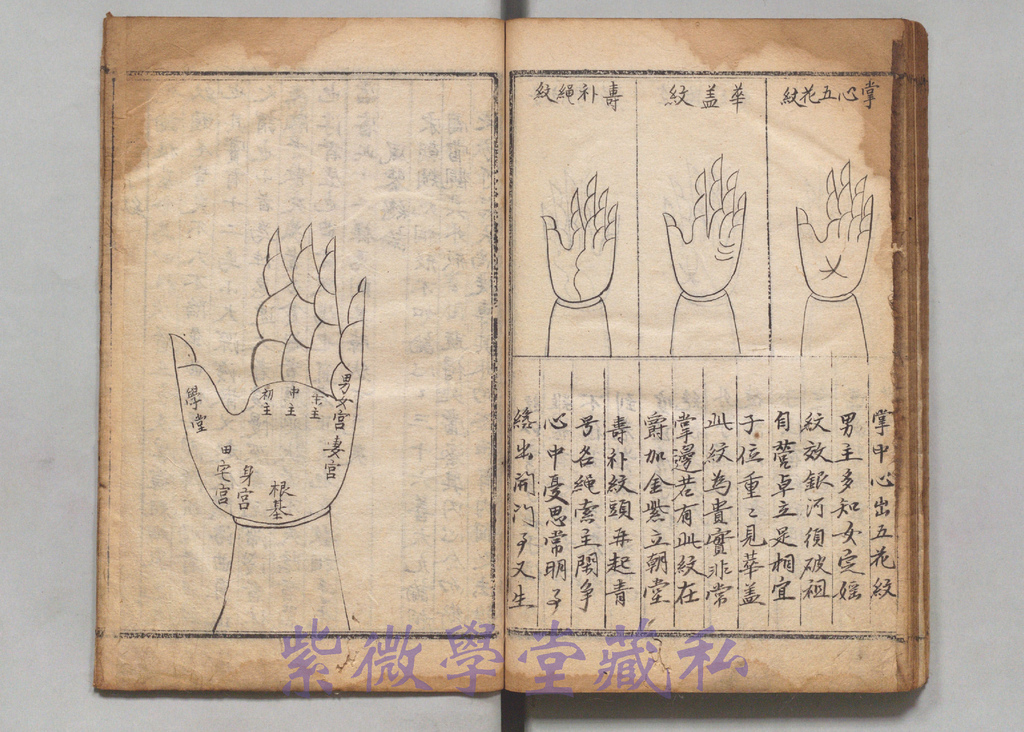 掌心五花紋
華盖紋
壽补绳紋
掌中心出五花紋
男主多知女定婬
紋效銀河須破祖
自營卓立是相宜
子位重〻見華盖
此紋為貴實非常
掌邊若有此紋在
爵加金紫立朝堂
壽补紋頭再起青
号名绳索主閗争
心中憂思常明
出開门子又生
男女宮
妻宮
主
中主
初主
根基
身宮
田宅宮
學堂
紫微學堂藏私